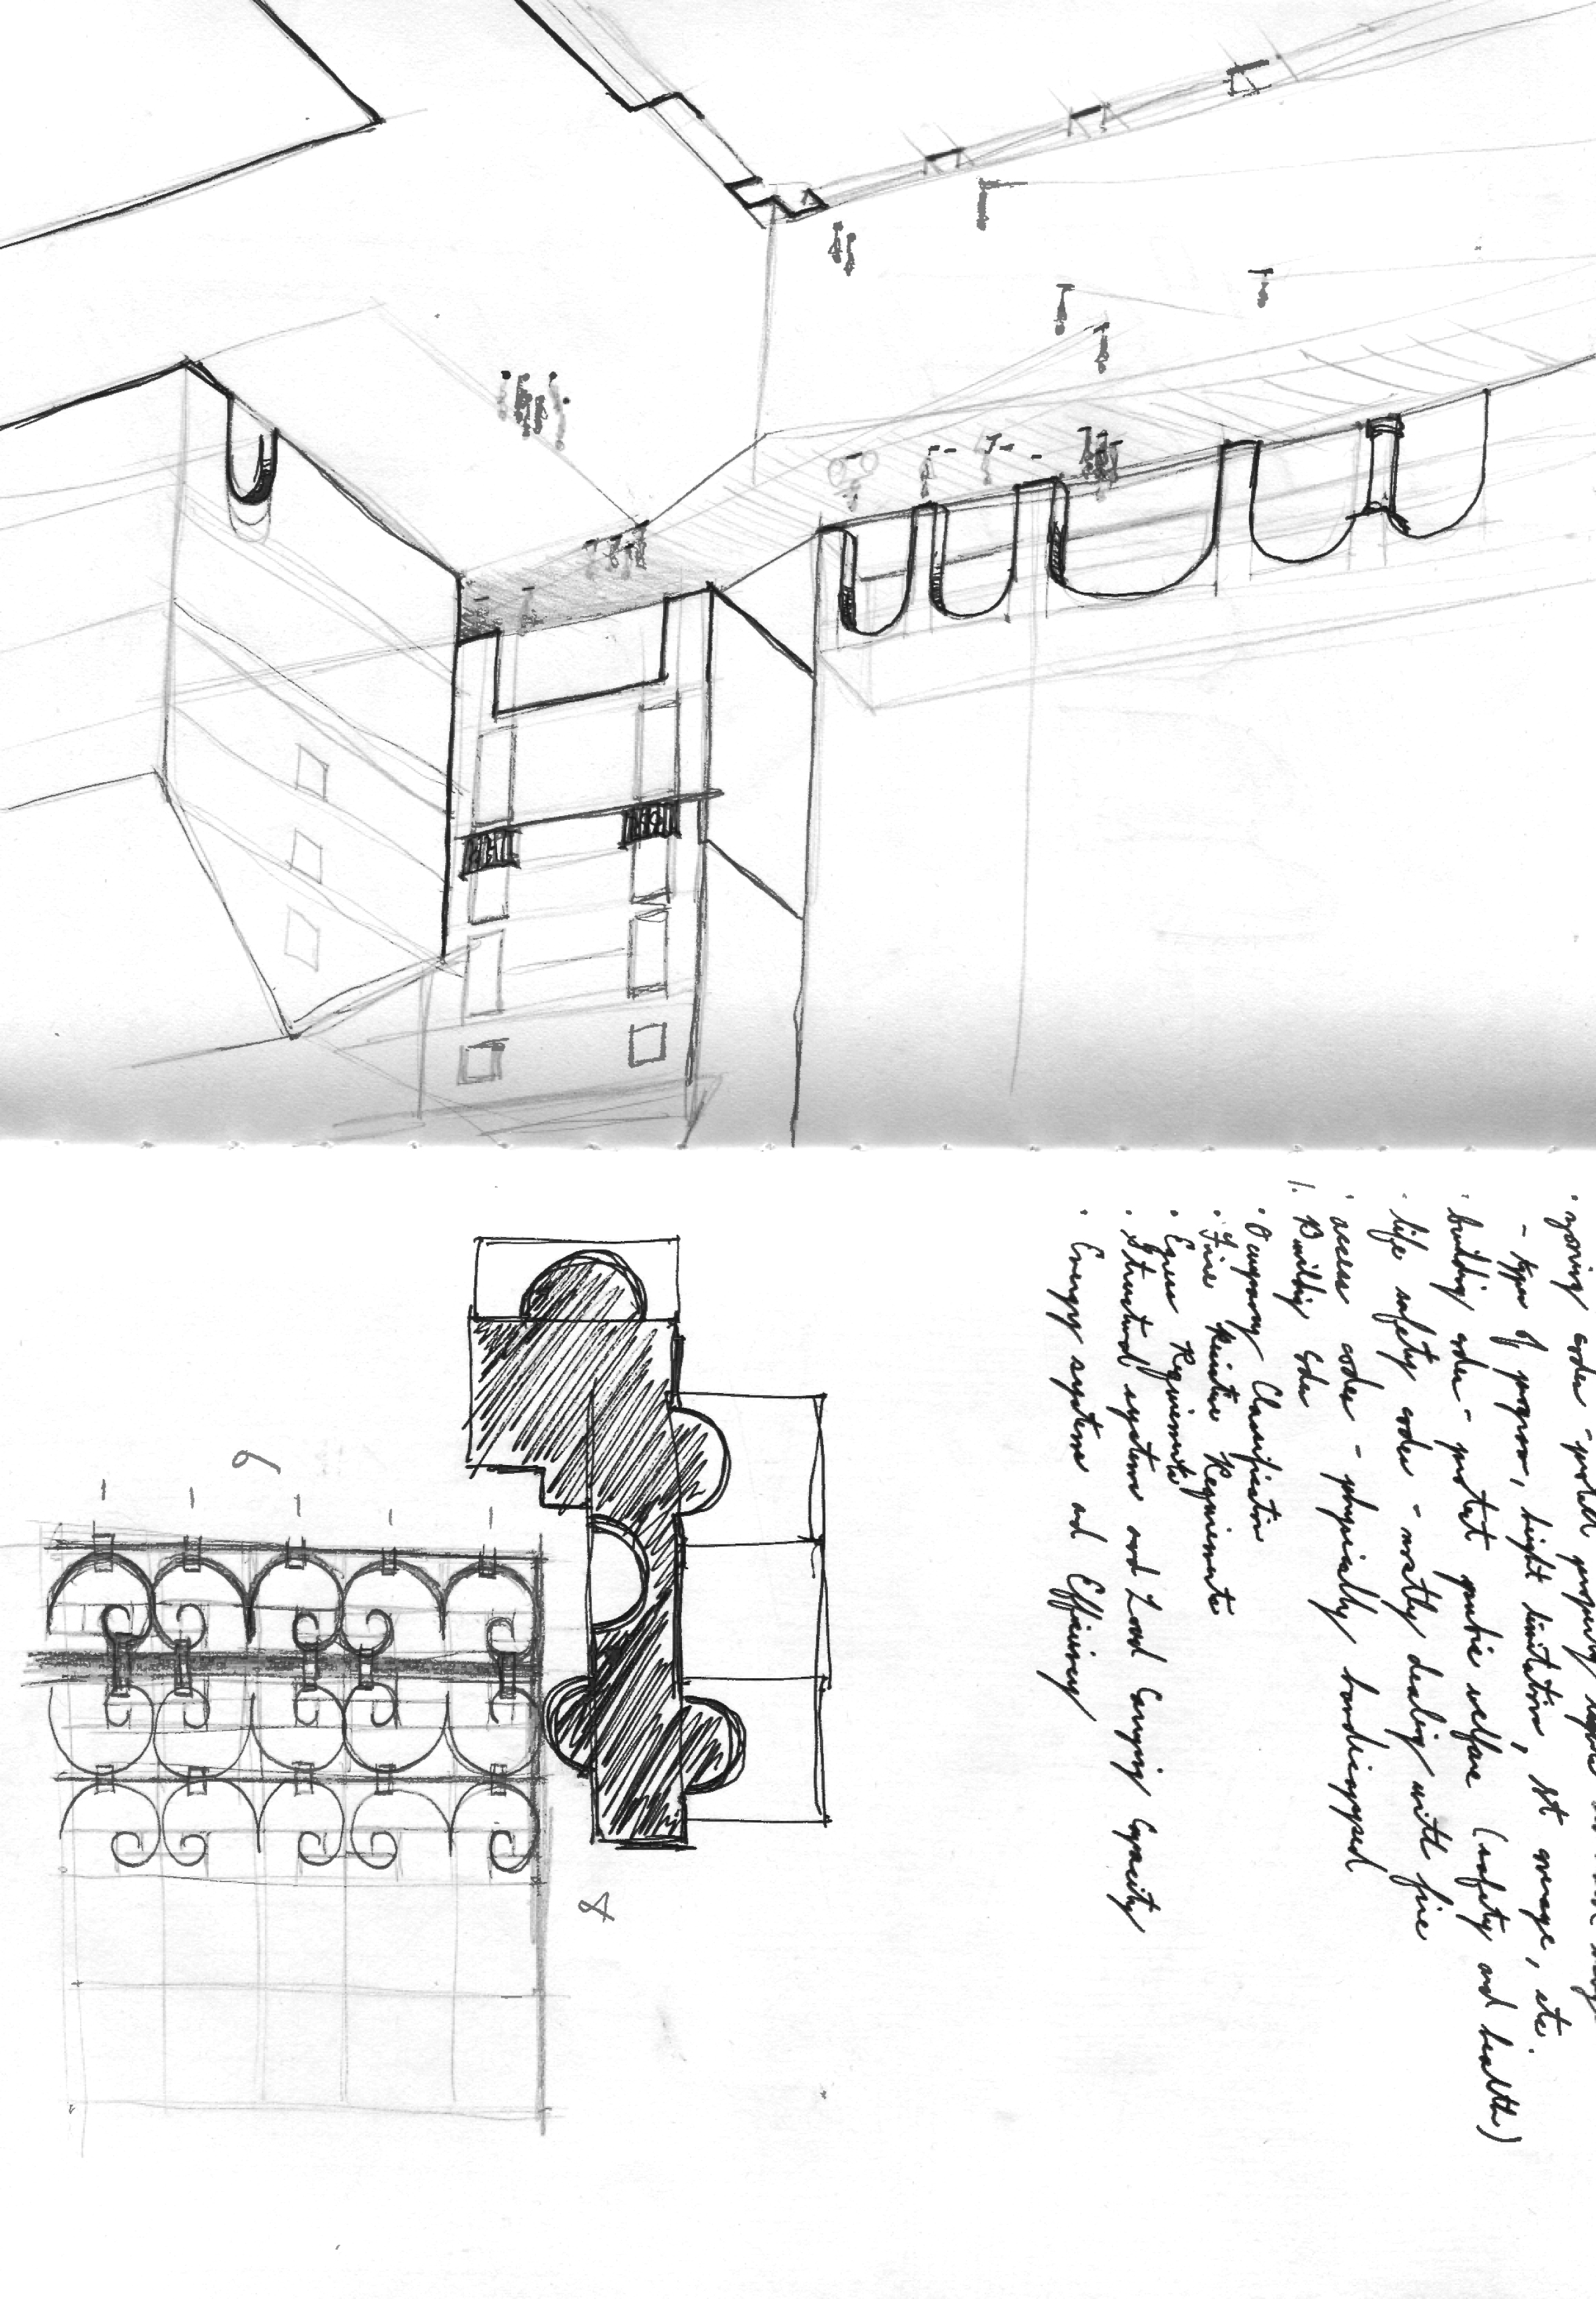 · zoning codes - protect property
- type of program, height limitation, st coverage, etc.
· building codes - protect public welfare (safety and health)
· life safety codes - mostly dealing with fire
· access codes - physically handicapped
1. Building Codes
· Occupancy Classification
· Fire Resistive Requirements
· Egress Requirements
· Structural systems and Load Carrying Capacity
· Energy systems and Efficiency
9
8